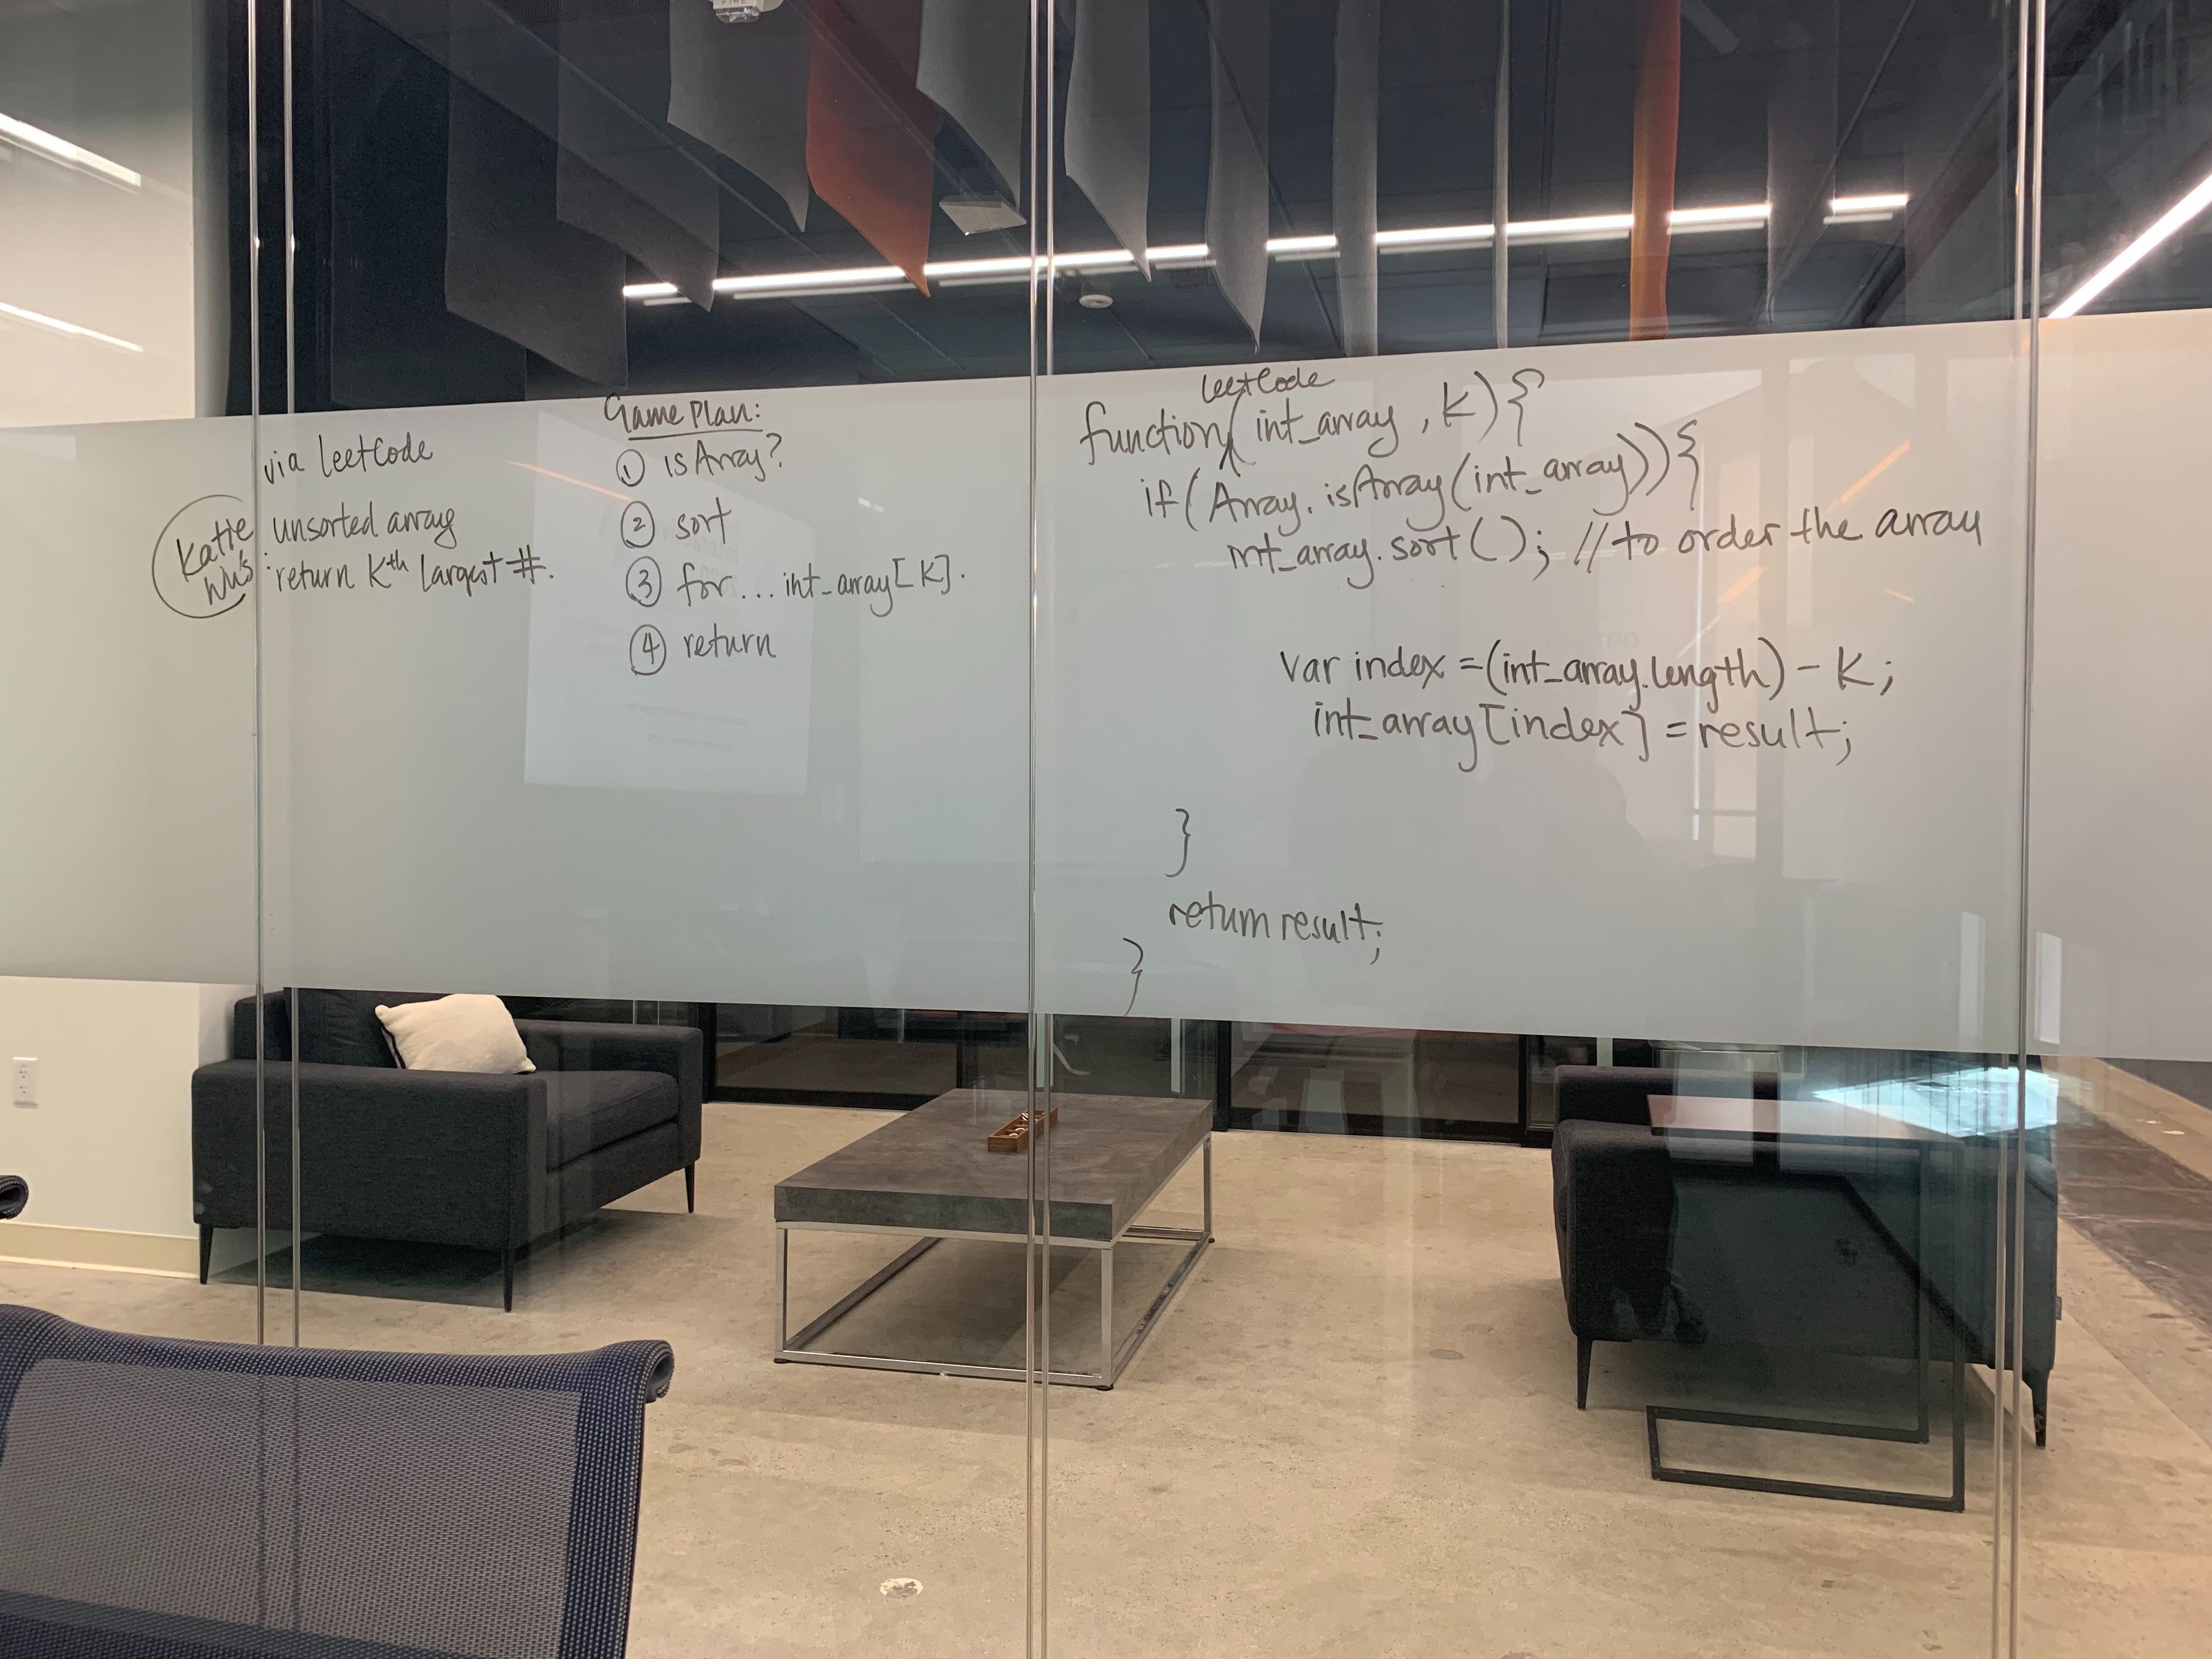 FIRE
via leetCode
Katie
Wu's
unsorted array
return Kth largest #.
Game Plan:
① is Array?
② sort
③ for... int_array[K].
④ return
leetCode
function (int_array, K) {
if (Array.isArray(int_array)) {
int_array.sort(); // to order the array
var index = (int_array.length) - K;
int_array[index] = result;
}
return result;
}